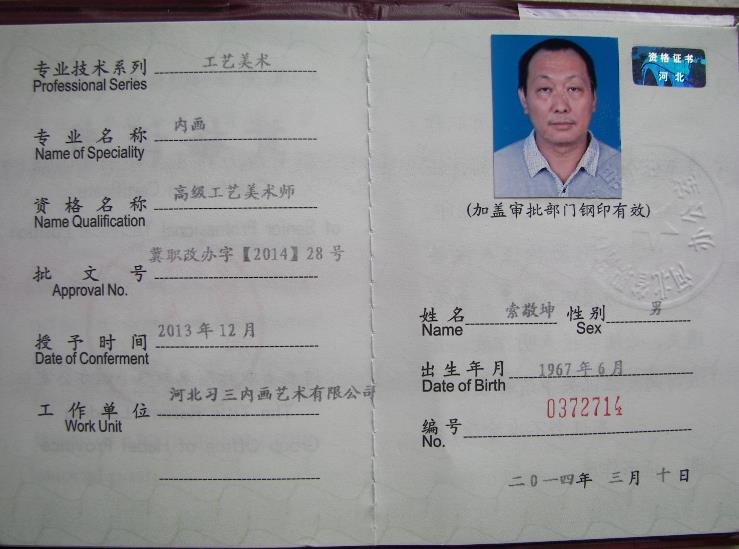 专业技术系列 工艺美术
Professional Series
专业名称 内画
Name of Speciality
资格名称 高级工艺美术师
Name Qualification
冀职改办字【2014】28号
批文号
Approval No.
授予时间 2013年12月
Date of Conferment
工作单位 河北习三内画艺术有限公司
Work Unit
资格证书
河北
(加盖审批部门钢印有效)
姓名 索敬坤 性别 男
Name Sex
出生年月 1967年6月
Date of Birth
编号 0372714
No.
二〇一四年 三月 十日